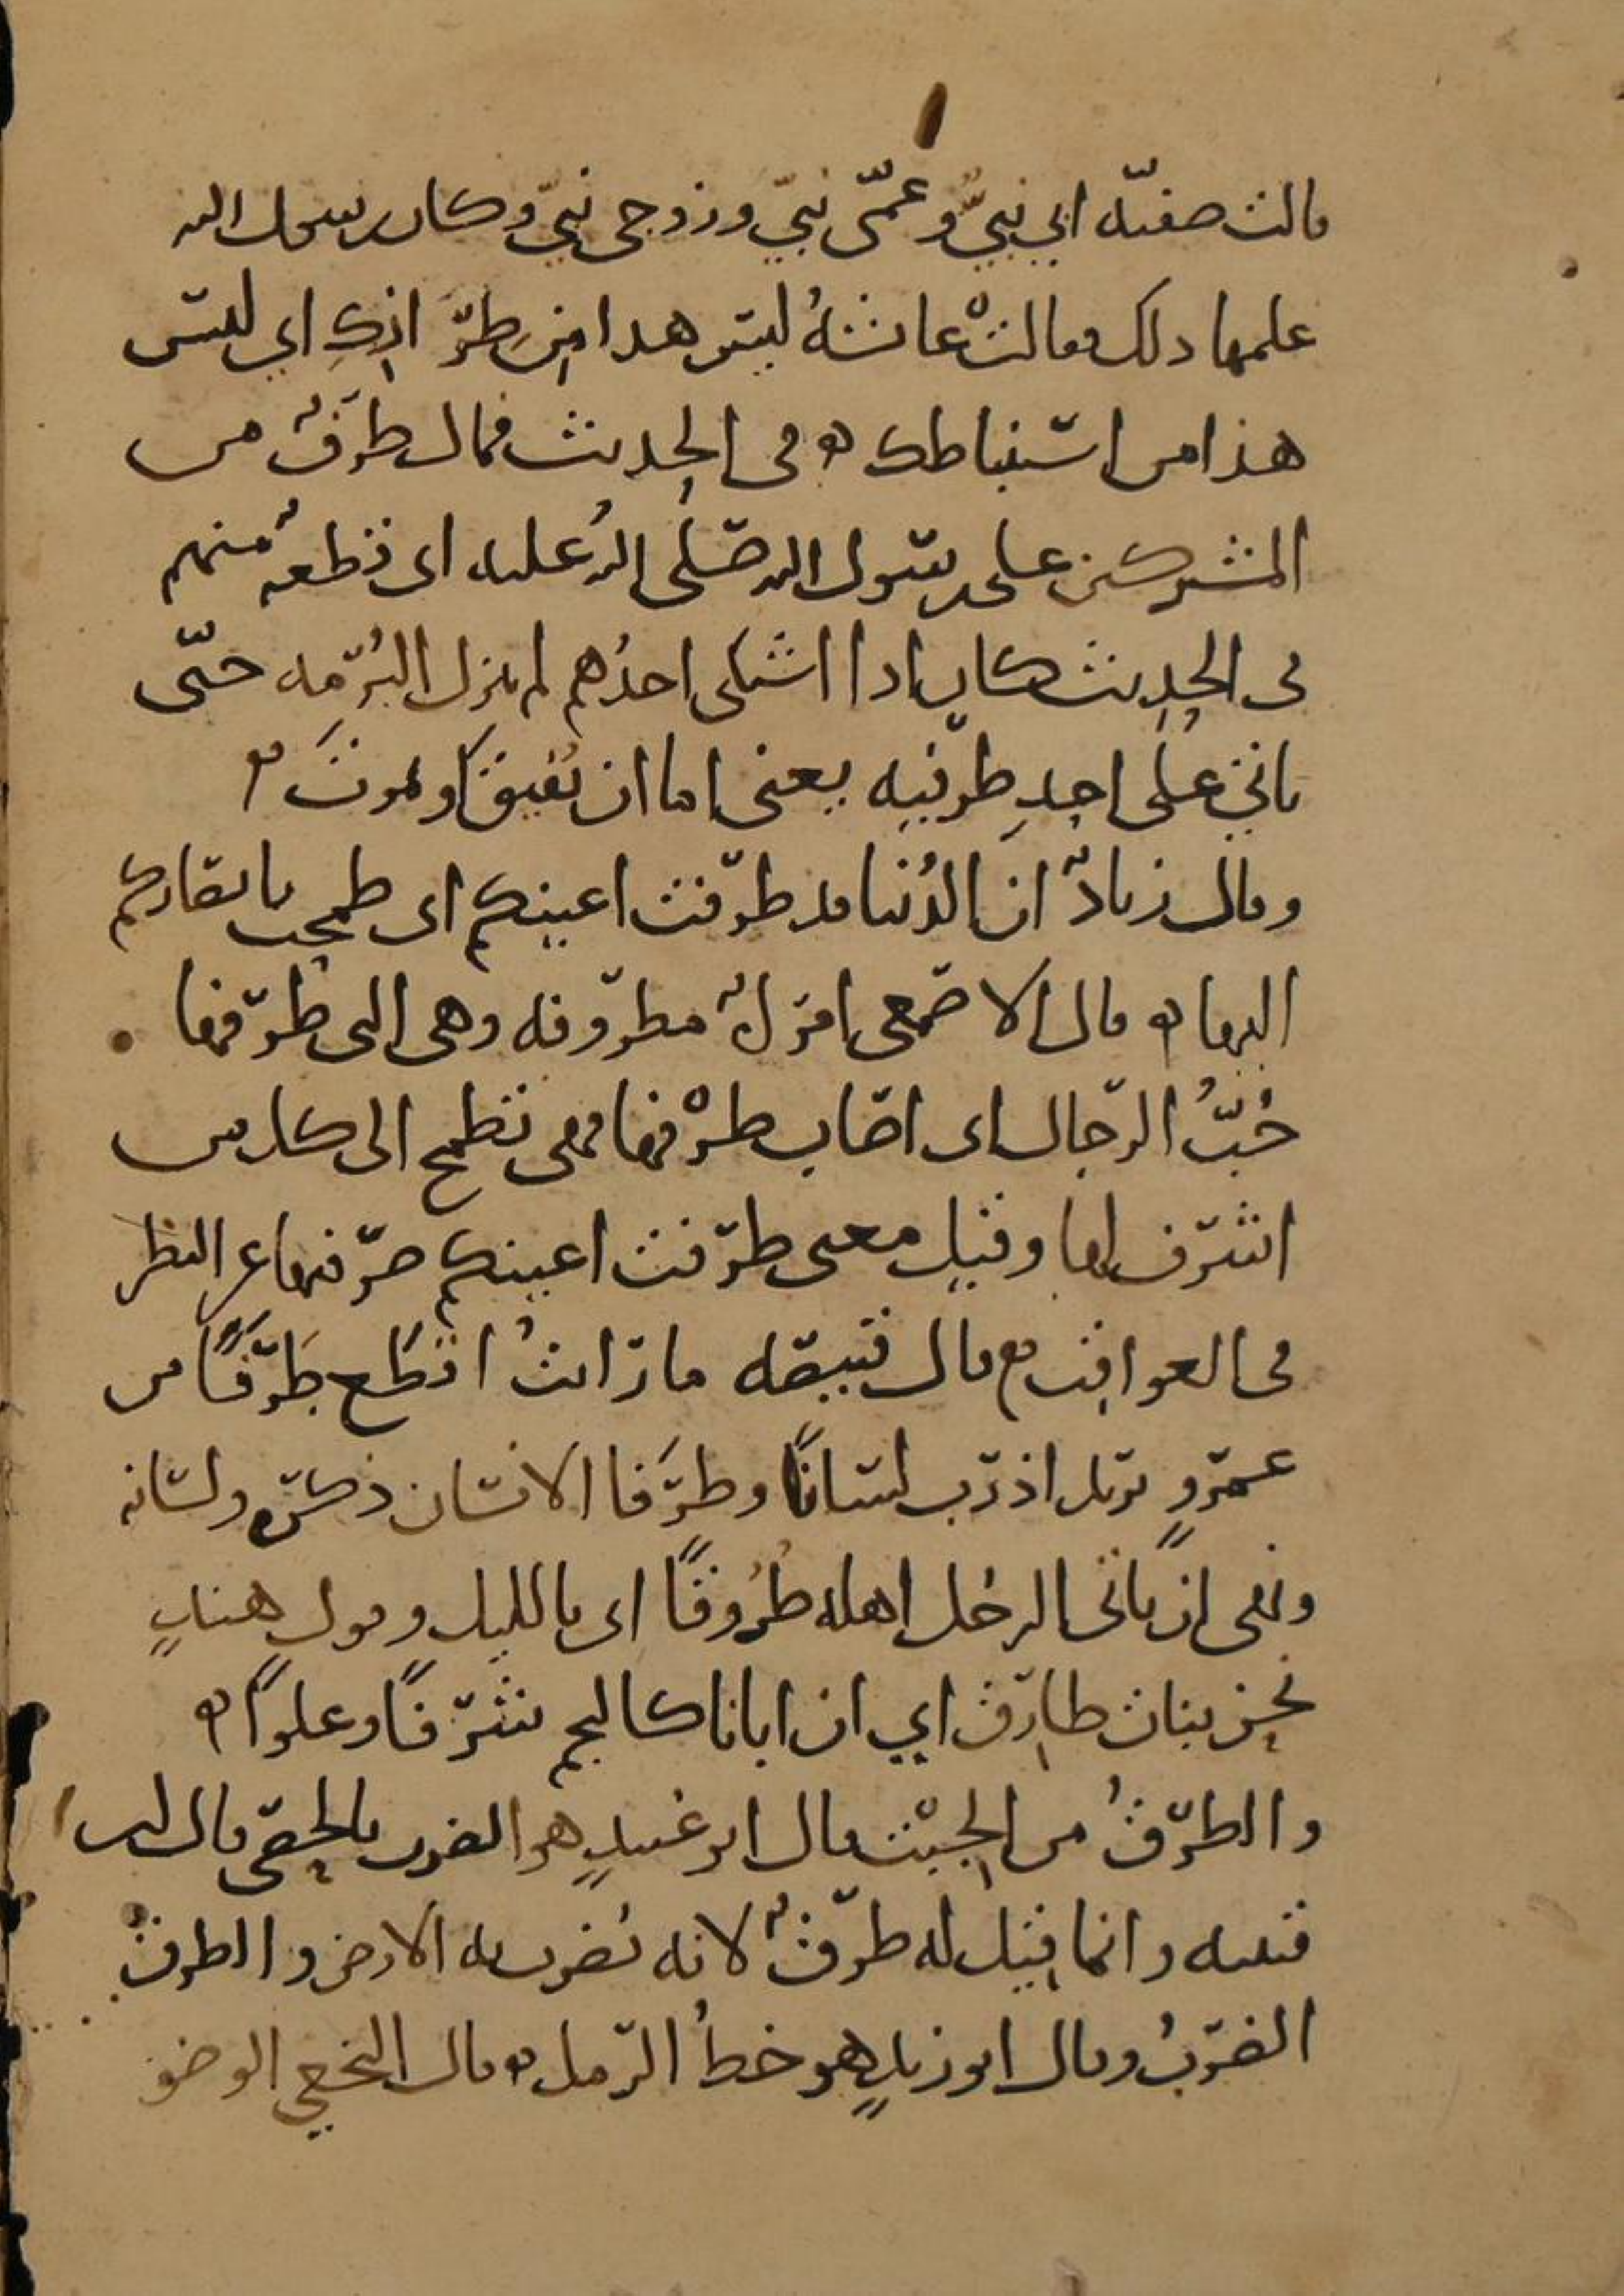 قالت صفية ابي نبيٌّ وعمّي نبيّ وزوجي نبيّ وكان رسول الله
علمها ذلك فقالت عائشةُ ليس هذا من طِرَازِكِ اي ليس
هذا من استنباطك ه في الحديث فمال طرفٌ من
المشركين على رسول الله صلى الله عليه اى قطعةٌ منهم
في الحديث كان اذا اشتكى احدُهم لم ينزل البُرمة حتّى
ياتي على احدِ طرفيه يعنى اما ان يُفيقَ او يموتَ ه
وقال زيادٌ ان الدُنيا قد طرفت اعينكم اى طمحت بابصاركم
اليها ه قال الاصمعى امرأةٌ مطروفه وهى التى طرفها
حُبُّ الرجال اى اصاب طرْفها فهى تطمح الى كل من
اشرف لها وقيل معنى طرفت اعينكم صرفتها عن النظر
في العواقب ه قال قبيصه ما رايتُ اقطع طَرَفًا من
عمروٍ يريد اذرب لسانًا وطَرَفا الانسان ذكره ولسانه
ونهى ان ياتى الرجل اهله طُرُوقًا اى بالليل وقول هندٍ
نحن بنات طارق اي ان ابانا كالنجم شرفًا وعلوًا ه
والطرقُ من الجبت قال ابو عبيدٍ هو الضرب بالحصى قال ابن
قتيبه وانما قيل له طرقٌ لانه يُضرب به الارض والطرقُ
الضربُ وقال ابو زيدٍ هو خطُ الرمل ه قال النخعي الوضو